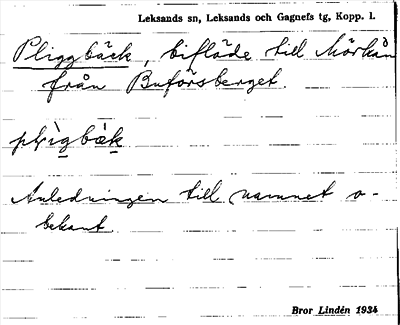 Leksands sn, Leksands och Gagnefs tg, Kopp. l.
Pliggbäck, biflöde till Mörkån
från Buförsberget.
plìgbäk
Anledningen till namnet o-
bekant.
Bror Lindén 1934